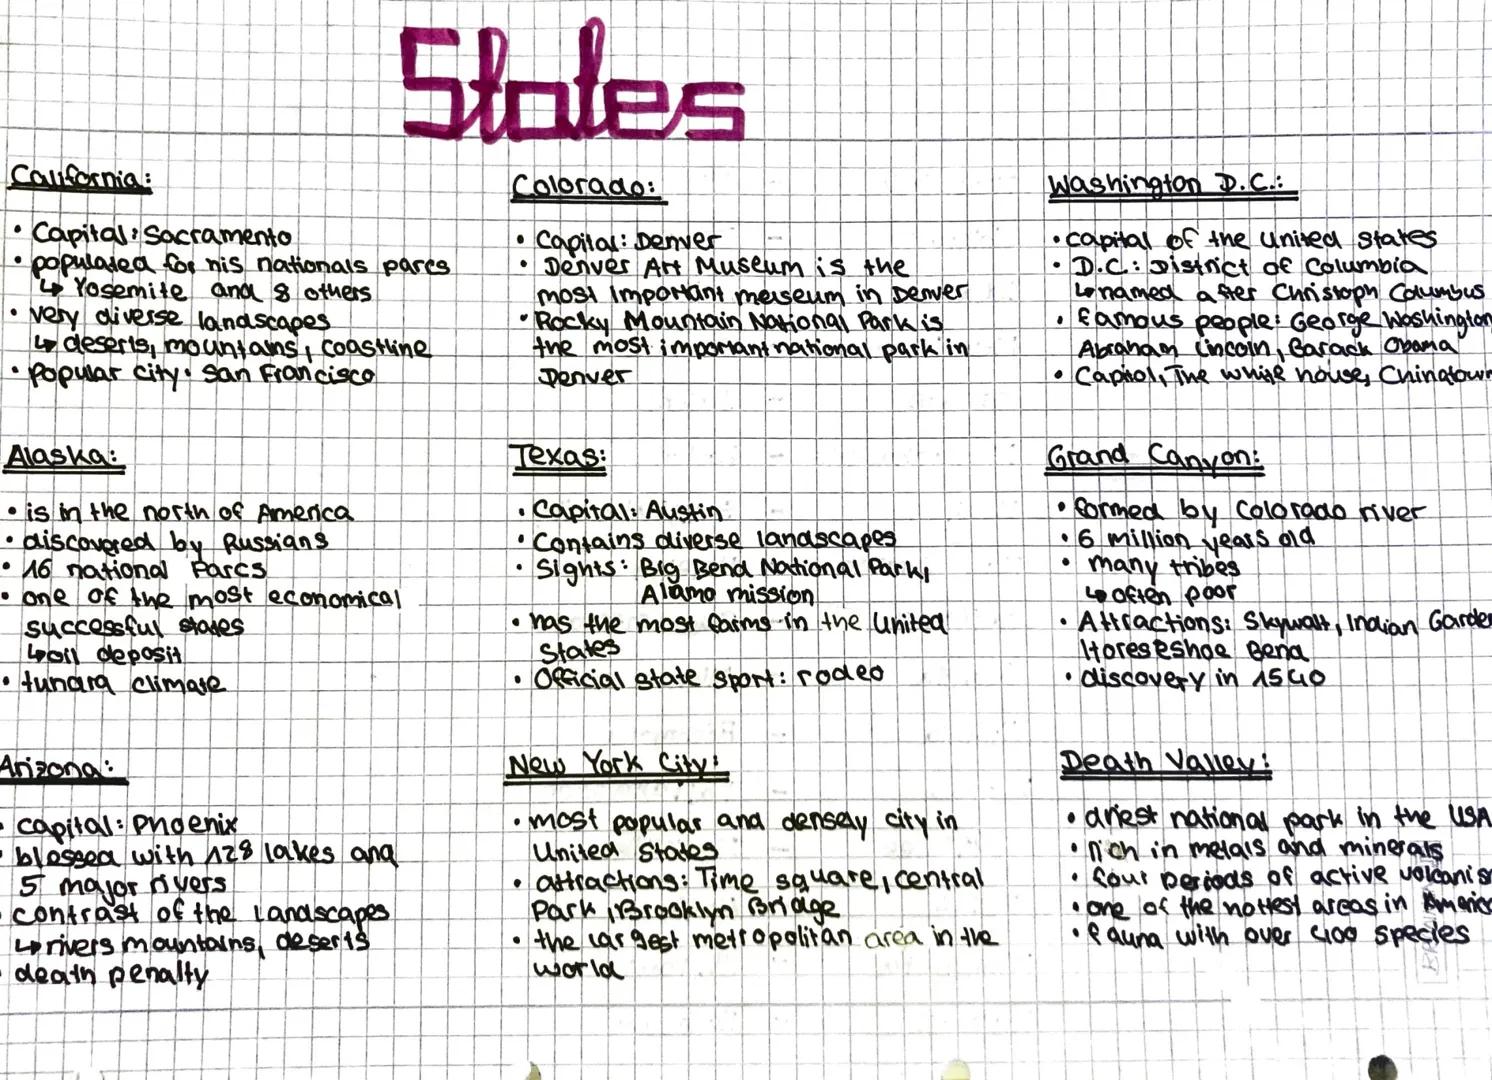 States
California:
• Capital: Sacramento
• populated for his nationals parcs
↳ Yosemite and 8 others
• very diverse landscapes
↳ deserts, mountains, coastline
• popular city: San Francisco
Colorado:
• Capital: Denver
• Denver Art Museum is the
most important meuseum in Denver
• Rocky Mountain National Park is
the most important national park in
Denver
Washington D.C.:
• capital of the united states
• D.C.: District of Columbia
↳ named after Christoph Columbus
• famous people: George Washington
Abraham Lincoln, Barack Obama
• Capitol, The white house, Chinatown
Alaska:
• is in the north of America
• discovered by Russians
• 16 national Parcs
• one of the most economical
successful states
↳ oil deposit
• tundra climate
Texas:
• Capital: Austin
• Contains diverse landscapes
• Sights: Big Bend National Park,
Alamo mission
• has the most farms in the United
States
• Official state sport: rodeo
Grand Canyon:
• formed by Colorado river
• 6 million years old
• many tribes
↳ often poor
• Attractions: Skywalk, Indian Garden
Horseshoe Bend
• discovery in 1540
Arizona:
• capital: Phoenix
• blessed with 128 lakes and
5 major rivers
• contrast of the landscapes
↳ rivers mountains, deserts
• death penalty
New York City:
• most popular and densely city in
United States
• attractions: Time square, central
Park, Brooklyn Bridge
• the largest metropolitan area in the
world
Death Valley:
• driest national park in the USA
• rich in metals and minerals
• four periods of active volcanism
• one of the hottest areas in America
• fauna with over 400 species